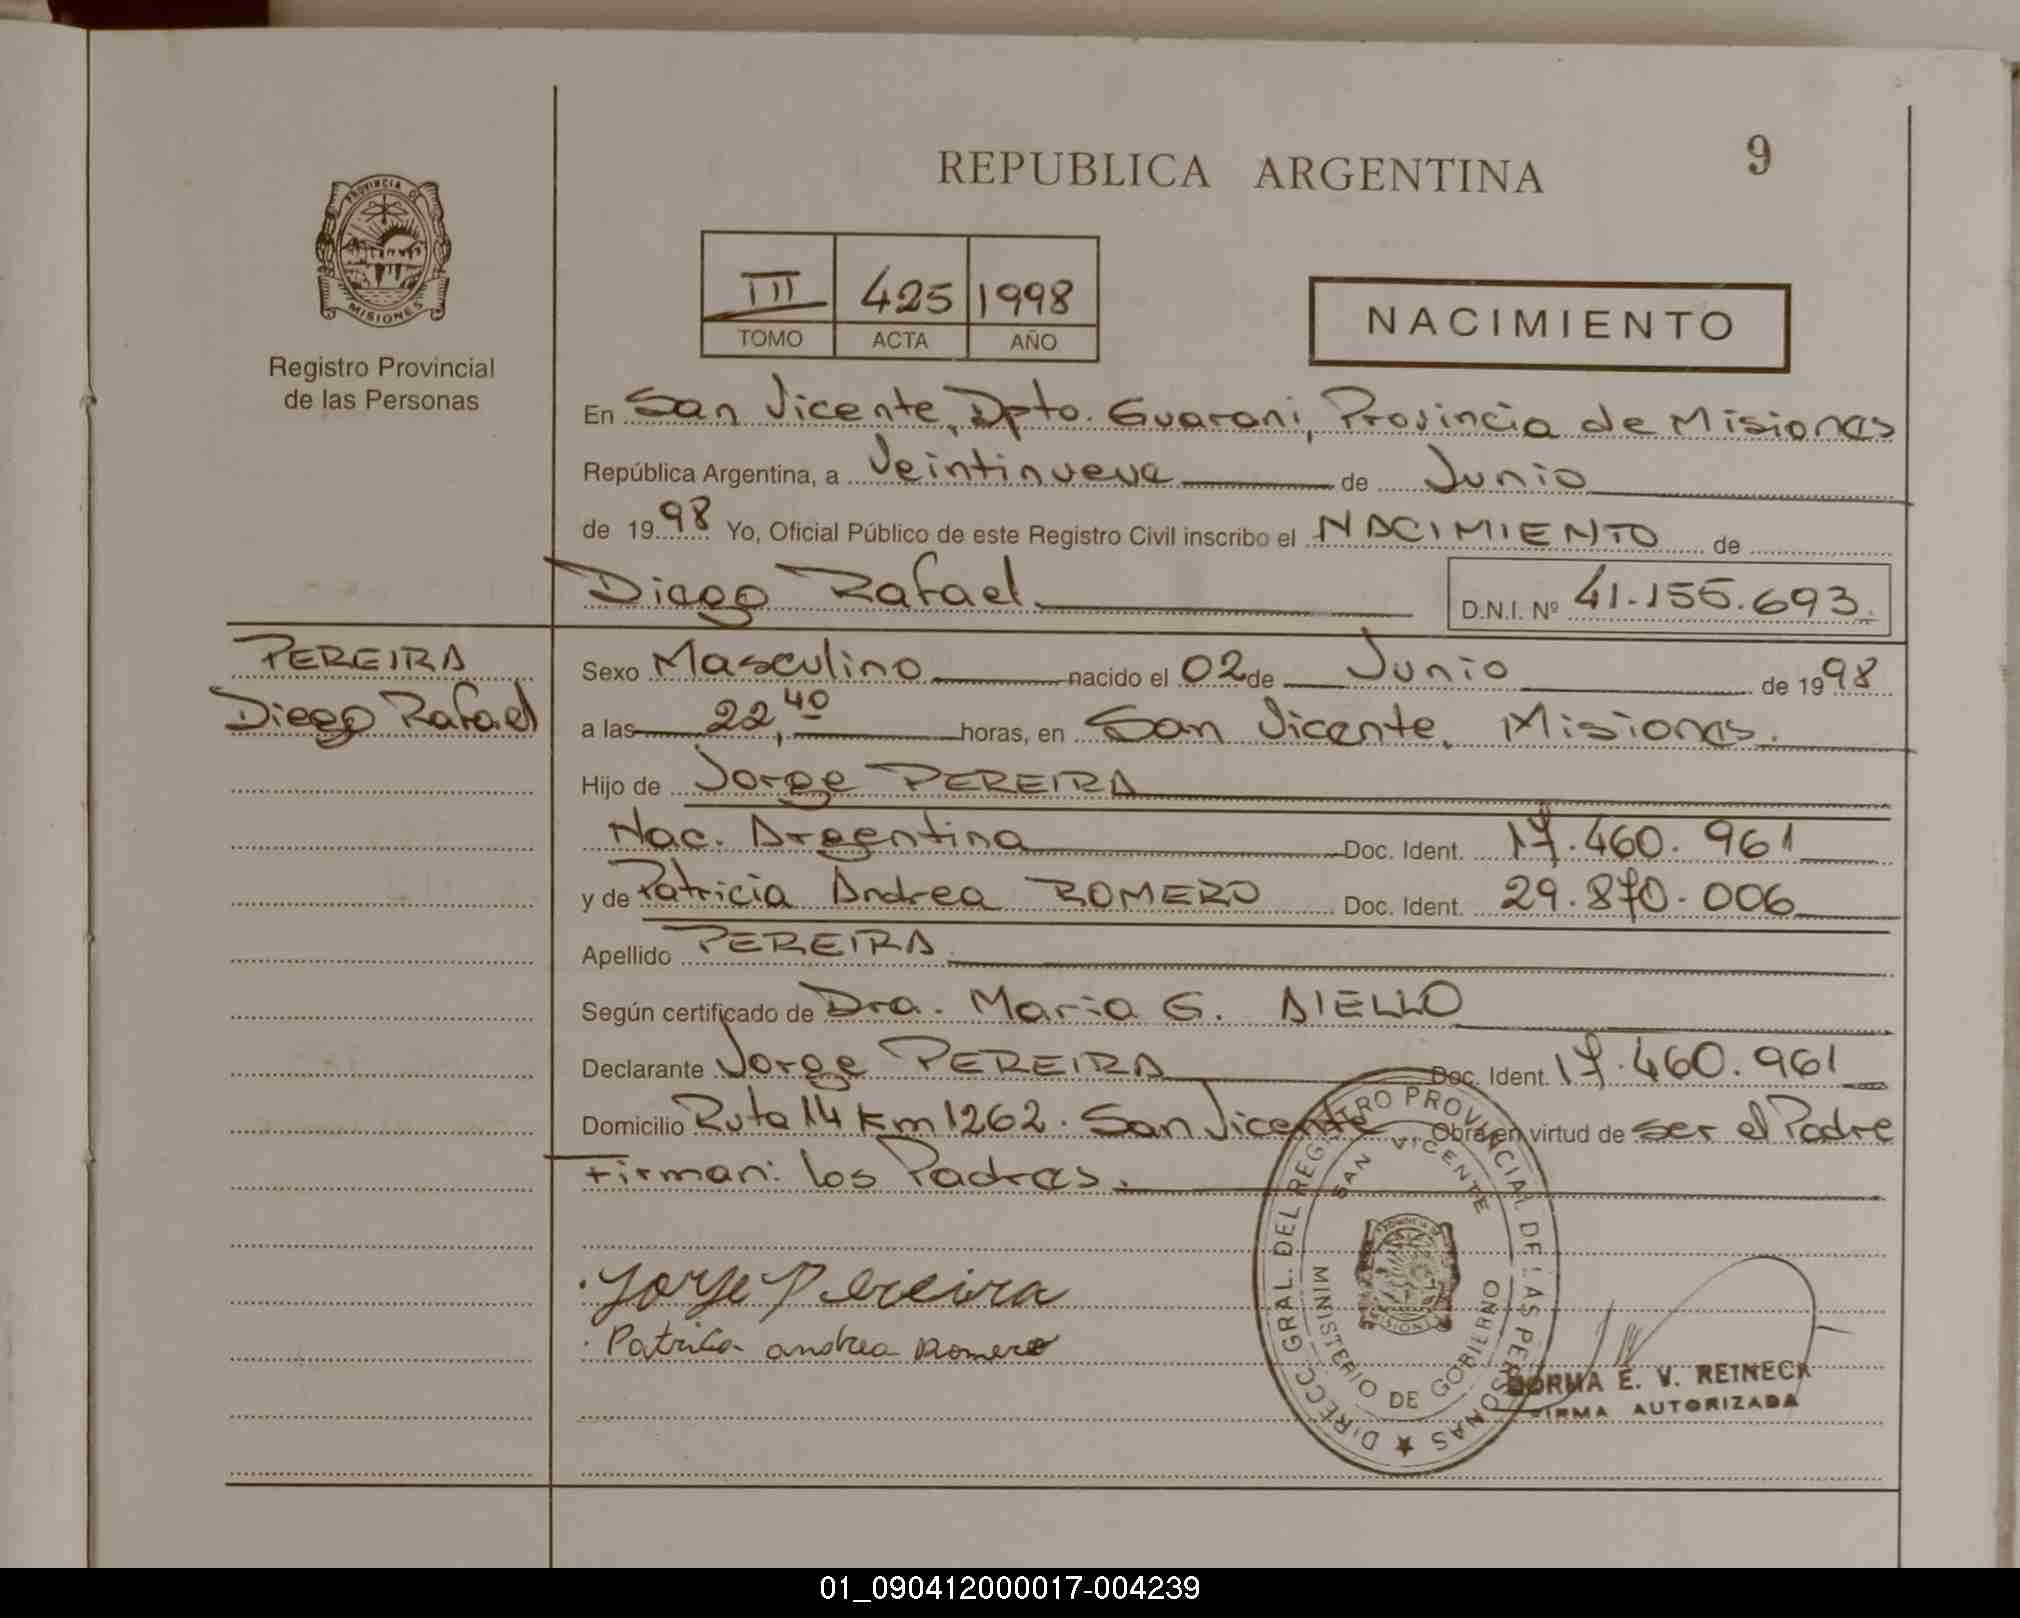 REPUBLICA ARGENTINA
9
PROVINCIA DE
MISIONES
Registro Provincial
de las Personas
III 425 1998
TOMO ACTA AÑO
NACIMIENTO
En San Vicente, Dpto. Guarani, Provincia de Misiones
República Argentina, a Veintinueve de Junio
de 1998 Yo, Oficial Público de este Registro Civil inscribo el NACIMIENTO de
Diego Rafael D.N.I. Nº 41.155.693.
PEREIRA
Diego Rafael
Sexo Masculino nacido el 02 de Junio de 1998
a las 22,40 horas, en San Vicente, Misiones.
Hijo de Jorge PEREIRA
Nac. Argentina Doc. Ident. 17.460.961
y de Patricia Andrea ROMERO Doc. Ident. 29.870.006
Apellido PEREIRA
Según certificado de Dra. Maria G. AIELLO
Declarante Jorge PEREIRA Doc. Ident. 17.460.961
Domicilio Ruta 14 Km 1262. San Vicente Obra en virtud de ser el Padre
Firman: los Padres.
Jorge Pereira
Patricia andrea Romero
DIRECC. GRAL. DEL REGISTRO PROVINCIAL DE LAS PERSONAS
SAN VICENTE
MINISTERIO DE GOBIERNO
NORMA E. V. REINECK
FIRMA AUTORIZADA
01_090412000017-004239